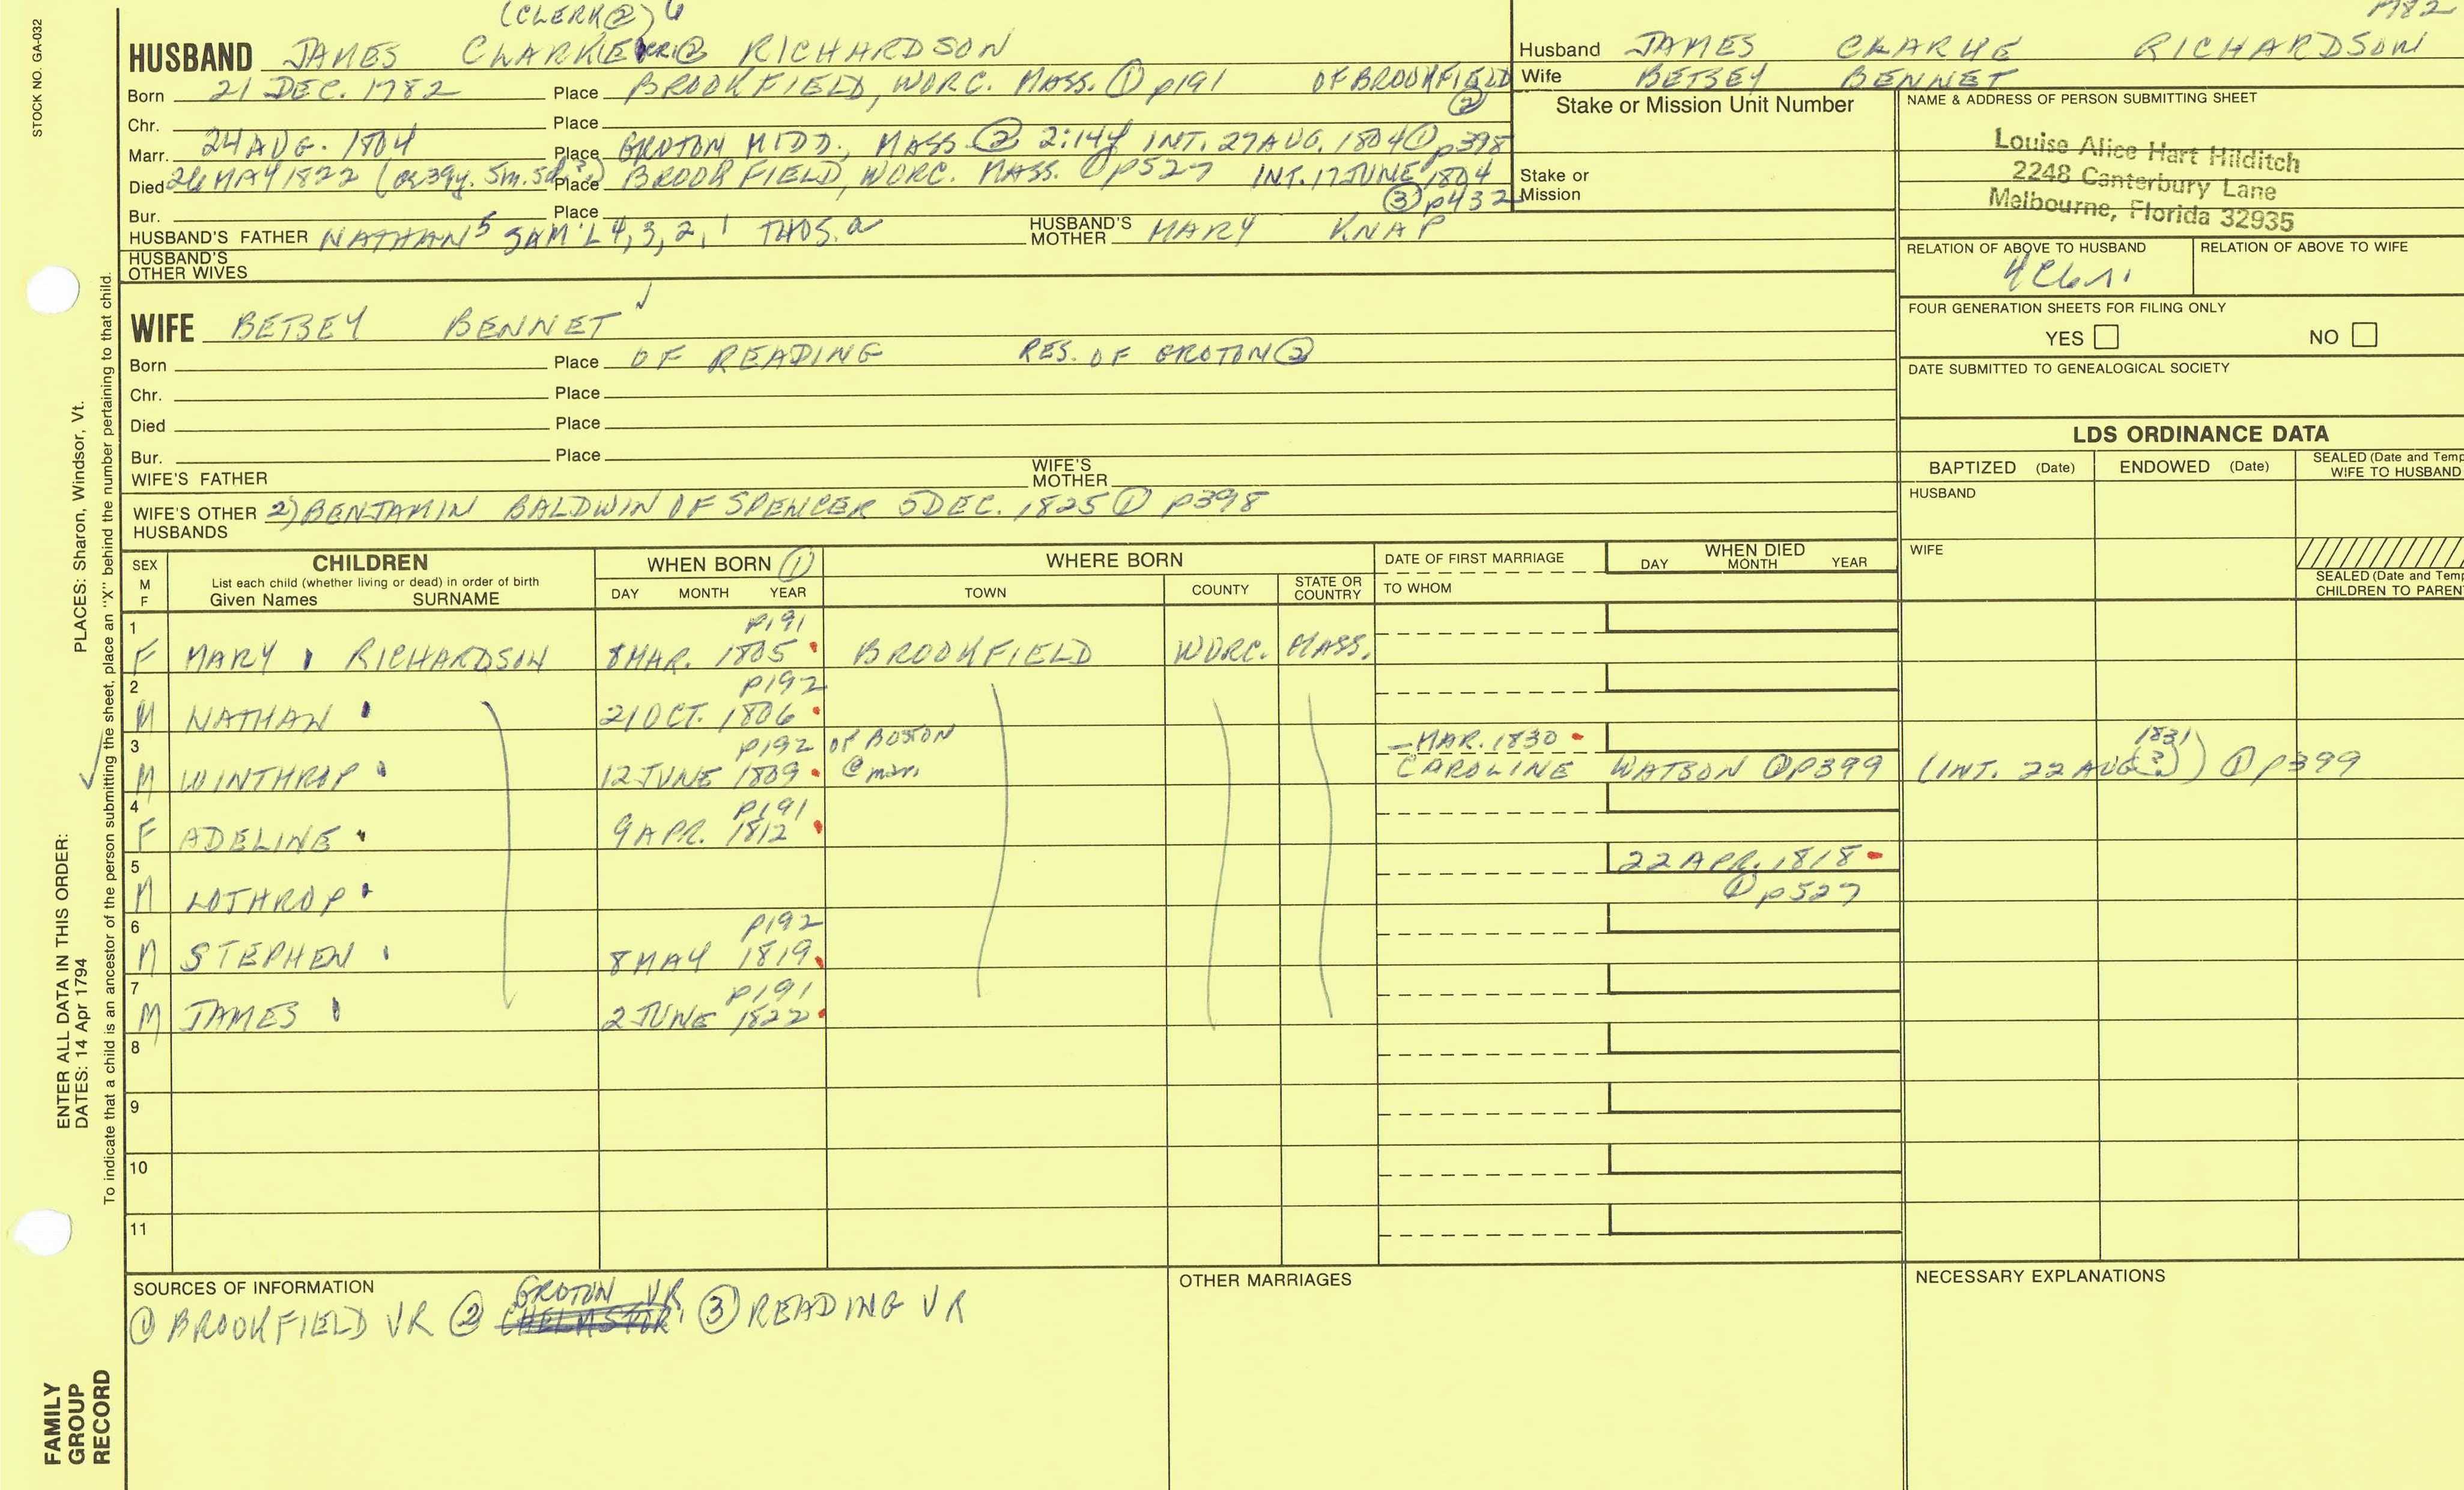 STOCK NO. GA-032
(CLERK②) 6
HUSBAND JAMES CLARKE RICHARDSON
Born 21 DEC. 1782 Place BROOKFIELD, WORC. MASS. ① p191 OF BROOKFIELD ②
Chr. Place
Marr. 24 AUG. 1804 Place GROTON MIDD., MASS ② 2:144 INT. 27 AUG. 1804 ① p398
Died 26 MAY 1822 (ae 39y. 5m. 5d.) Place BROOKFIELD, WORC. MASS. ① p527 INT. 17 JUNE 1804 ③ p432
Bur. Place
HUSBAND'S FATHER NATHAN 5 SAM'L 4, 3, 2, 1 THOS. a HUSBAND'S MOTHER MARY KNAP
HUSBAND'S OTHER WIVES
WIFE BETSEY BENNET
Born Place OF READING RES. OF GROTON ②
Chr. Place
Died Place
Bur. Place
WIFE'S FATHER WIFE'S MOTHER
WIFE'S OTHER HUSBANDS 2) BENJAMIN BALDWIN OF SPENCER 5 DEC. 1825 ① p398
1782
Husband JAMES CLARKE RICHARDSON
Wife BETSEY BENNET
Stake or Mission Unit Number
Stake or Mission
NAME & ADDRESS OF PERSON SUBMITTING SHEET
Louise Alice Hart Hilditch
2248 Canterbury Lane
Melbourne, Florida 32935
RELATION OF ABOVE TO HUSBAND RELATION OF ABOVE TO WIFE
FOUR GENERATION SHEETS FOR FILING ONLY
YES NO
DATE SUBMITTED TO GENEALOGICAL SOCIETY
LDS ORDINANCE DATA
BAPTIZED (Date) ENDOWED (Date) SEALED (Date and Temp
WIFE TO HUSBAND
HUSBAND
WIFE
SEALED (Date and Temp
CHILDREN TO PAREN
SEX M F
CHILDREN
List each child (whether living or dead) in order of birth
Given Names SURNAME
WHEN BORN ①
DAY MONTH YEAR
WHERE BORN
TOWN COUNTY STATE OR COUNTRY
DATE OF FIRST MARRIAGE
TO WHOM
WHEN DIED
DAY MONTH YEAR
1 p191
F MARY RICHARDSON 8 MAR. 1805 BROOKFIELD WORC. MASS.
2 p192
M NATHAN 21 OCT. 1806
3 p192 OF BOSTON — MAR. 1830 1831
M WINTHROP 12 JUNE 1809 @ mar. CAROLINE WATSON ① P399 (INT. 22 AUG (?)) ① p399
4 p191
F ADELINE 9 APR. 1812
5 22 APR. 1818
M LOTHROP ① p527
6 p192
M STEPHEN 8 MAY 1819
7 p191
M JAMES 2 JUNE 1822
8
9
10
11
SOURCES OF INFORMATION
① BROOKFIELD VR ② GROTON VR ③ READING VR
OTHER MARRIAGES
NECESSARY EXPLANATIONS
ENTER ALL DATA IN THIS ORDER:
DATES: 14 Apr 1794 PLACES: Sharon, Windsor, Vt.
To indicate that a child is an ancestor of the person submitting the sheet, place an "X" behind the number pertaining to that child.
FAMILY
GROUP
RECORD